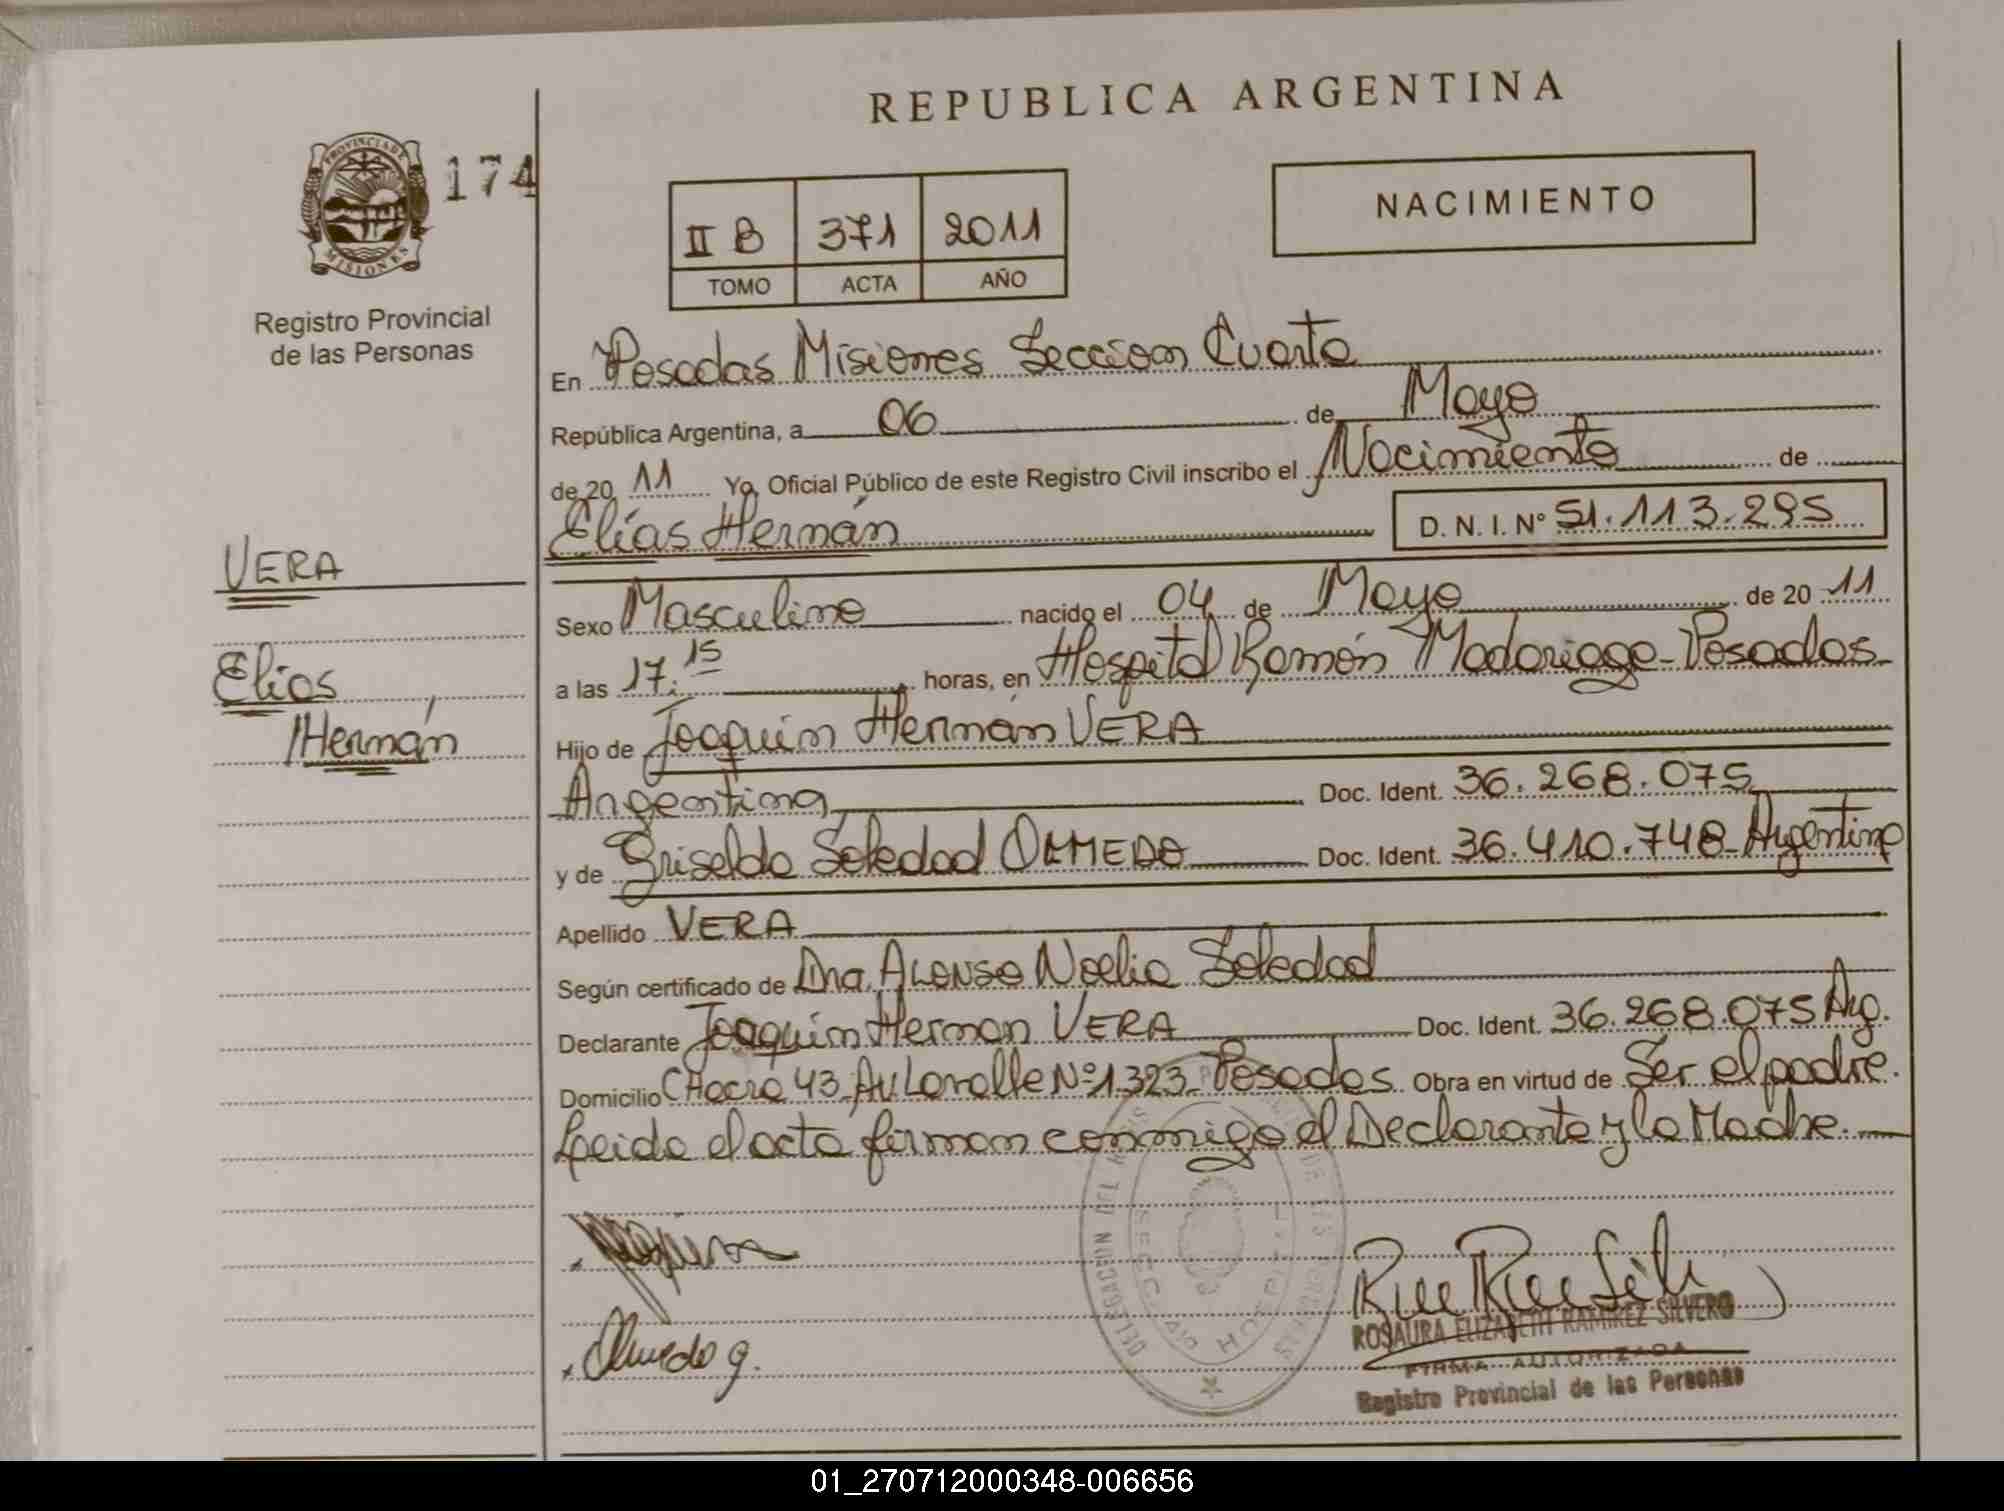 REPUBLICA ARGENTINA
PROVINCIA DE MISIONES
174
Registro Provincial
de las Personas
II B 371 2011
TOMO ACTA AÑO
NACIMIENTO
En Posadas Misiones Seccion Cuarta
República Argentina, a 06 de Mayo
de 20 11 Yo, Oficial Público de este Registro Civil inscribo el Nacimiento de
Elías Hernán D. N. I. N° 51.113.295
VERA
Elías
Hernán
Sexo Masculino nacido el 04 de Mayo de 20 11
a las 17:15 horas, en Hospital Ramón Madariaga - Posadas
Hijo de Joaquin Hernán VERA
Argentina Doc. Ident. 36.268.075
y de Griselda Soledad OLMEDO Doc. Ident. 36.410.748 Argentina
Apellido VERA
Según certificado de Dra. ALONSO Noelia Soledad
Declarante Joaquín Hernan VERA Doc. Ident. 36.268.075 Arg.
Domicilio CHacra 43 Av. Lavalle Nº 1.323 - Posadas Obra en virtud de Ser el padre.
Leida el acta firman conmigo el Declarante y la Madre.
Olmedo g.
ROSAURA ELIZABETH RAMIREZ SILVERO
FIRMA AUTORIZADA
Registro Provincial de las Personas
01_270712000348-006656